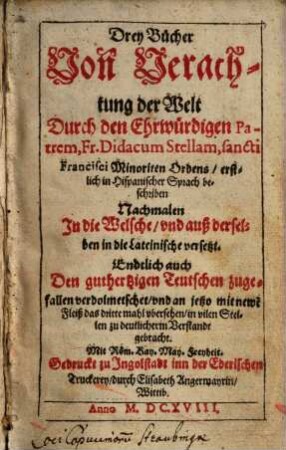 Drey Bücher
Von Verach-
tung der Welt
Durch den Ehrwürdigen Pa-
trem, Fr. Didacum Stellam, sancti
Francisci Minoriten Ordens / erst-
lich in Hispanischer Sprach be-
schriben
Nachmalen
In die Welsche / vnd auß dersel-
ben in die Lateinische versetzt.
Endtlich auch
Den guthertzigen Teutschen zuge-
fallen verdolmetschet / vnd an jetzo mit newē
Fleiß das dritte mahl vbersehen / in vilen Stel-
len zu deutlicherm Verstandt
gebracht.
Mit Röm. Kay. May. Freyheit.
Gedruckt zu Ingolstadt inn der Ederischen
Truckerey / durch Elisabeth Angermayrin /
Wittib.
Anno M. DCXVIII.
Loci Capucinorū Straubingæ